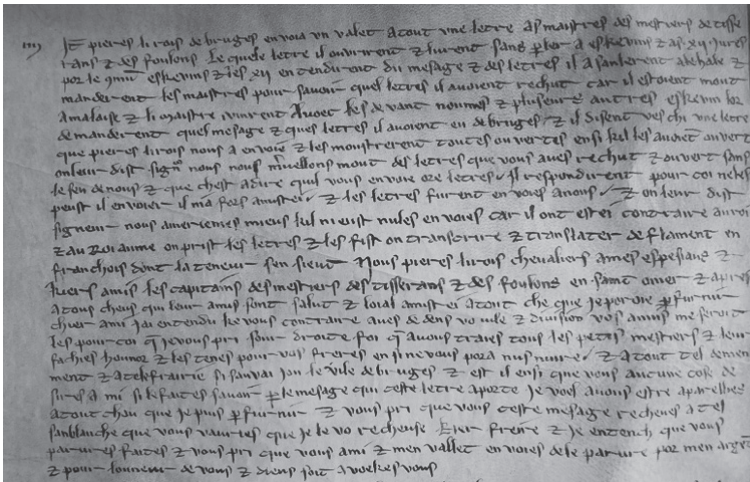 iiij It pieres li rois de bruges envoia un vallet a tout une letre as maistres des mestiers de tisse
rans ⁊ des foulons Le quele letre il ouvrirent ⁊ lurent sans pler a eskevins ⁊ as xij jures
por le quel eskevins ⁊ les xij entendirent du mesage ⁊ des letres il asanlerent a le hale ⁊
manderent les maistres pour savoir quel letres il avoient rechut car il estoient mout
a malaise ⁊ li maistre vinrent avoec les devant noumes ⁊ pluseurs autres eskevin lor
demanderent quel mesage ⁊ ques letres il avoient eu de bruges ⁊ il disent ves chi une letre
que pieres li rois nous a envoié ⁊ les monstrerent toutes ouvertes ensi kil les avoient ouvert
on leur dist sign nous nous mervellons mout des letres que vous aves rechut ⁊ ouvert sans
le seu de nous ⁊ que chest a dire quil vous envoie ore letres il respondirent pour coi ne les
peust il envoier il ni a fors amistei ⁊ les letres furent envoies a nous ⁊ on leur dist
signeur nous ameriemes mieus kil nieust nules envoies car il ont estei contraire au roi
⁊ au roiaume on prist les letres ⁊ les fist on transcrire ⁊ translater de flament en
franchois dont la teneur sensieut Nous pieres li rois chevaliers ames espesiaus ⁊
kiers amis les capitains des mestiers des tisserans ⁊ des foulons en saint omer ⁊ apres
a tous cheus qui leur amis sont salut ⁊ loial amistei a tout che que je poroie furnir
chier ami jai entendu ke vous contraire aves de dens vo vile ⁊ division vos amis me
les pour coi je vous pri sour droite foi avous traies tous les petis mestiers ⁊ leur
fachies honnor ⁊ les tenes pour vos freres ensi ne vous pora nus nuire ⁊ a tout tel
ment ⁊ a tele frairie si sauvai jou le vile de bruges ⁊ est il ensi que vous aucune cose de
sires a mi si le faites savoir p le mesage qui ceste letre aporte je voel a vous estre aparellies
a tout chou que je puis furnir ⁊ vous pri que vous ceste mesage recheves a tel
sanblanche que vous vauries que je le vo recheuse kier frere ⁊ je entench que vous
parures faites ⁊ vous pri que vous ami ⁊ men vallet envoies de le parure por men argent
⁊ pour louneur de vous ⁊ diens soit avoekes vous